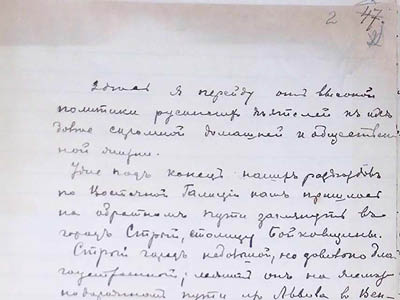 2 47.
2
Здѣсь я перейду отъ высокой
политики русинскихъ дѣятелей къ ихъ
довольно скромной домашней и обществен
ной жизни.
Уже подъ конецъ нашихъ разъѣздовъ
по Восточной Галиціи намъ пришлось
на обратномъ пути заглянуть въ
городъ Стрый, столицу Бойковщины.
Стрый городъ небольшой, но довольно бла
гоустроенный; лежитъ онъ на желѣз
нодорожномъ пути изъ Львова въ Вен-